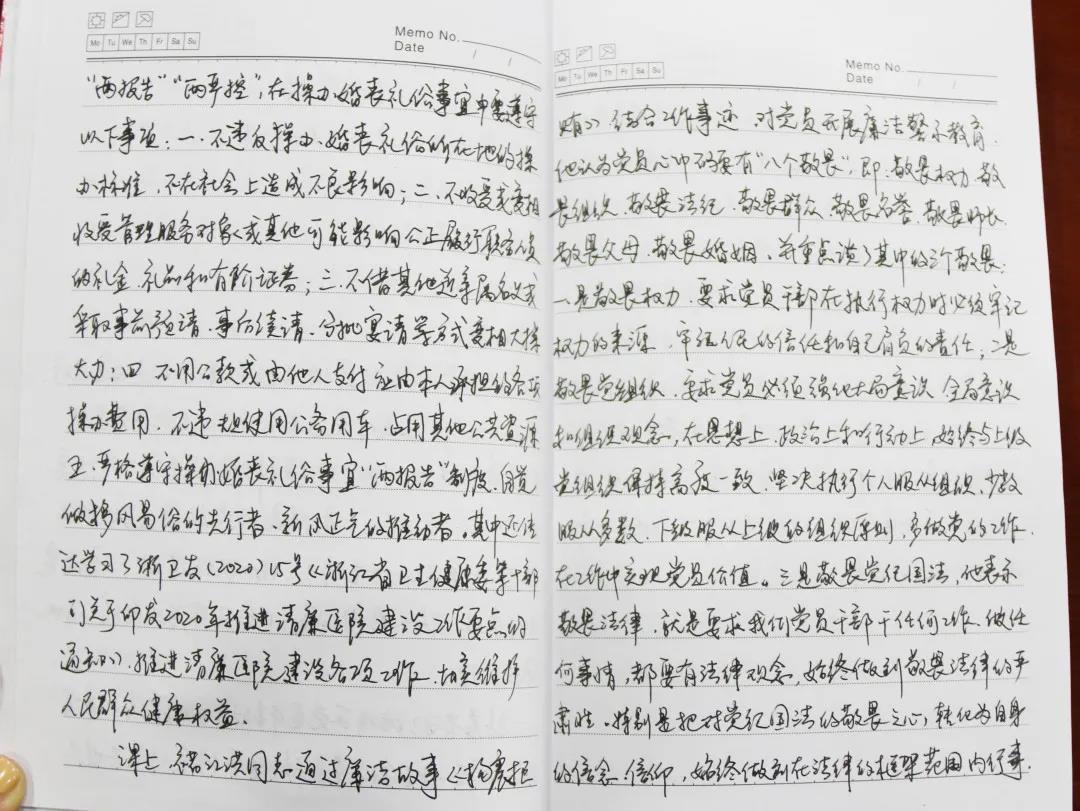 Memo No.
Date / /
Mo Tu We Th Fr Sa Su
"两报告""两严控",在操办婚丧礼俗事宜中要遵守
以下事项:一、不违反操办婚丧礼俗所在地的操
办标准,不在社会上造成不良影响;二、不收受或变相
收受管理服务对象或其他可能影响公正履行职务人员
的礼金、礼品和有价证券;三、不借其他近亲属名义或
采取事前预请、事后续请、分批宴请等方式变相大操
大办;四、不用公款或由他人支付应由本人承担的各项
操办费用,不违规使用公务用车、占用其他公共资源
五、严格遵守操办婚丧礼俗事宜"两报告"制度,自觉
做移风易俗的先行者、新风正气的推动者。其中还传
达学习了浙卫发(2020)15号《浙江省卫生健康委等十部
门关于印发2020年推进清廉医院建设工作要点的
通知》,推进清廉医院建设各项工作,切实维护
人民群众健康权益。
课上,江洪同志通过廉洁故事《杨震拒
Memo No.
Date / /
Mo Tu We Th Fr Sa Su
贿》结合工作事迹,对党员开展廉洁警示教育,
他认为党员心中要有"八个敬畏",即:敬畏权力、敬
畏组织、敬畏法纪、敬畏群众、敬畏名誉、敬畏师长、
敬畏父母、敬畏婚姻,并重点谈了其中的三个敬畏:
一是敬畏权力,要求党员干部在执行权力时必须牢记
权力的来源,牢记人民的信任和自己肩负的责任;二是
敬畏党组织,要求党员必须强化大局意识、全局意识
和组织观念,在思想上、政治上和行动上始终与上级
党组织保持高度一致,坚决执行个人服从组织、少数
服从多数、下级服从上级的组织原则,多做党的工作,
在工作中实现党员价值。三是敬畏党纪国法,他表示
敬畏法律,就是要求我们党员干部干任何工作、做任
何事情,都要有法律观念,始终做到敬畏法律的严
肃性。特别是把对党纪国法的敬畏之心,转化为自身
的信念、信仰,始终做到在法律的框架范围内行事.